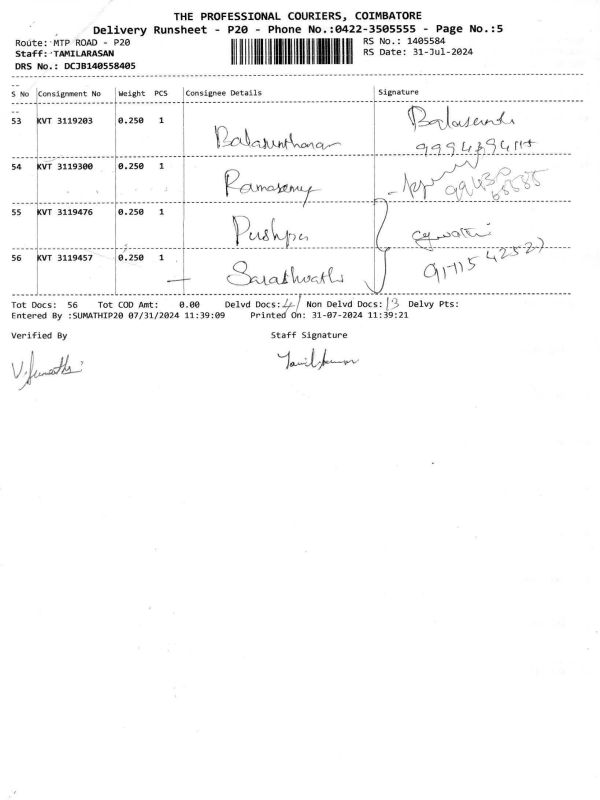 THE PROFESSIONAL COURIERS, COIMBATORE
Delivery Runsheet - P20 - Phone No.:0422-3505555 - Page No.:5
Route: MTP ROAD - P20 RS No.: 1405584
Staff: TAMILARASAN RS Date: 31-Jul-2024
DRS No.: DCJB140558405
S No Consignment No Weight PCS Consignee Details Signature
53 KVT 3119203 0.250 1
54 KVT 3119300 0.250 1
Ramasamy
55 KVT 3119476 0.250 1
Pushpa
56 KVT 3119457 0.250 1
Tot Docs: 56 Tot COD Amt: 0.00 Delvd Docs: Non Delvd Docs: Delvy Pts:
Entered By :SUMATHIP20 07/31/2024 11:39:09 Printed On: 31-07-2024 11:39:21
Verified By Staff Signature
V. Sumathi